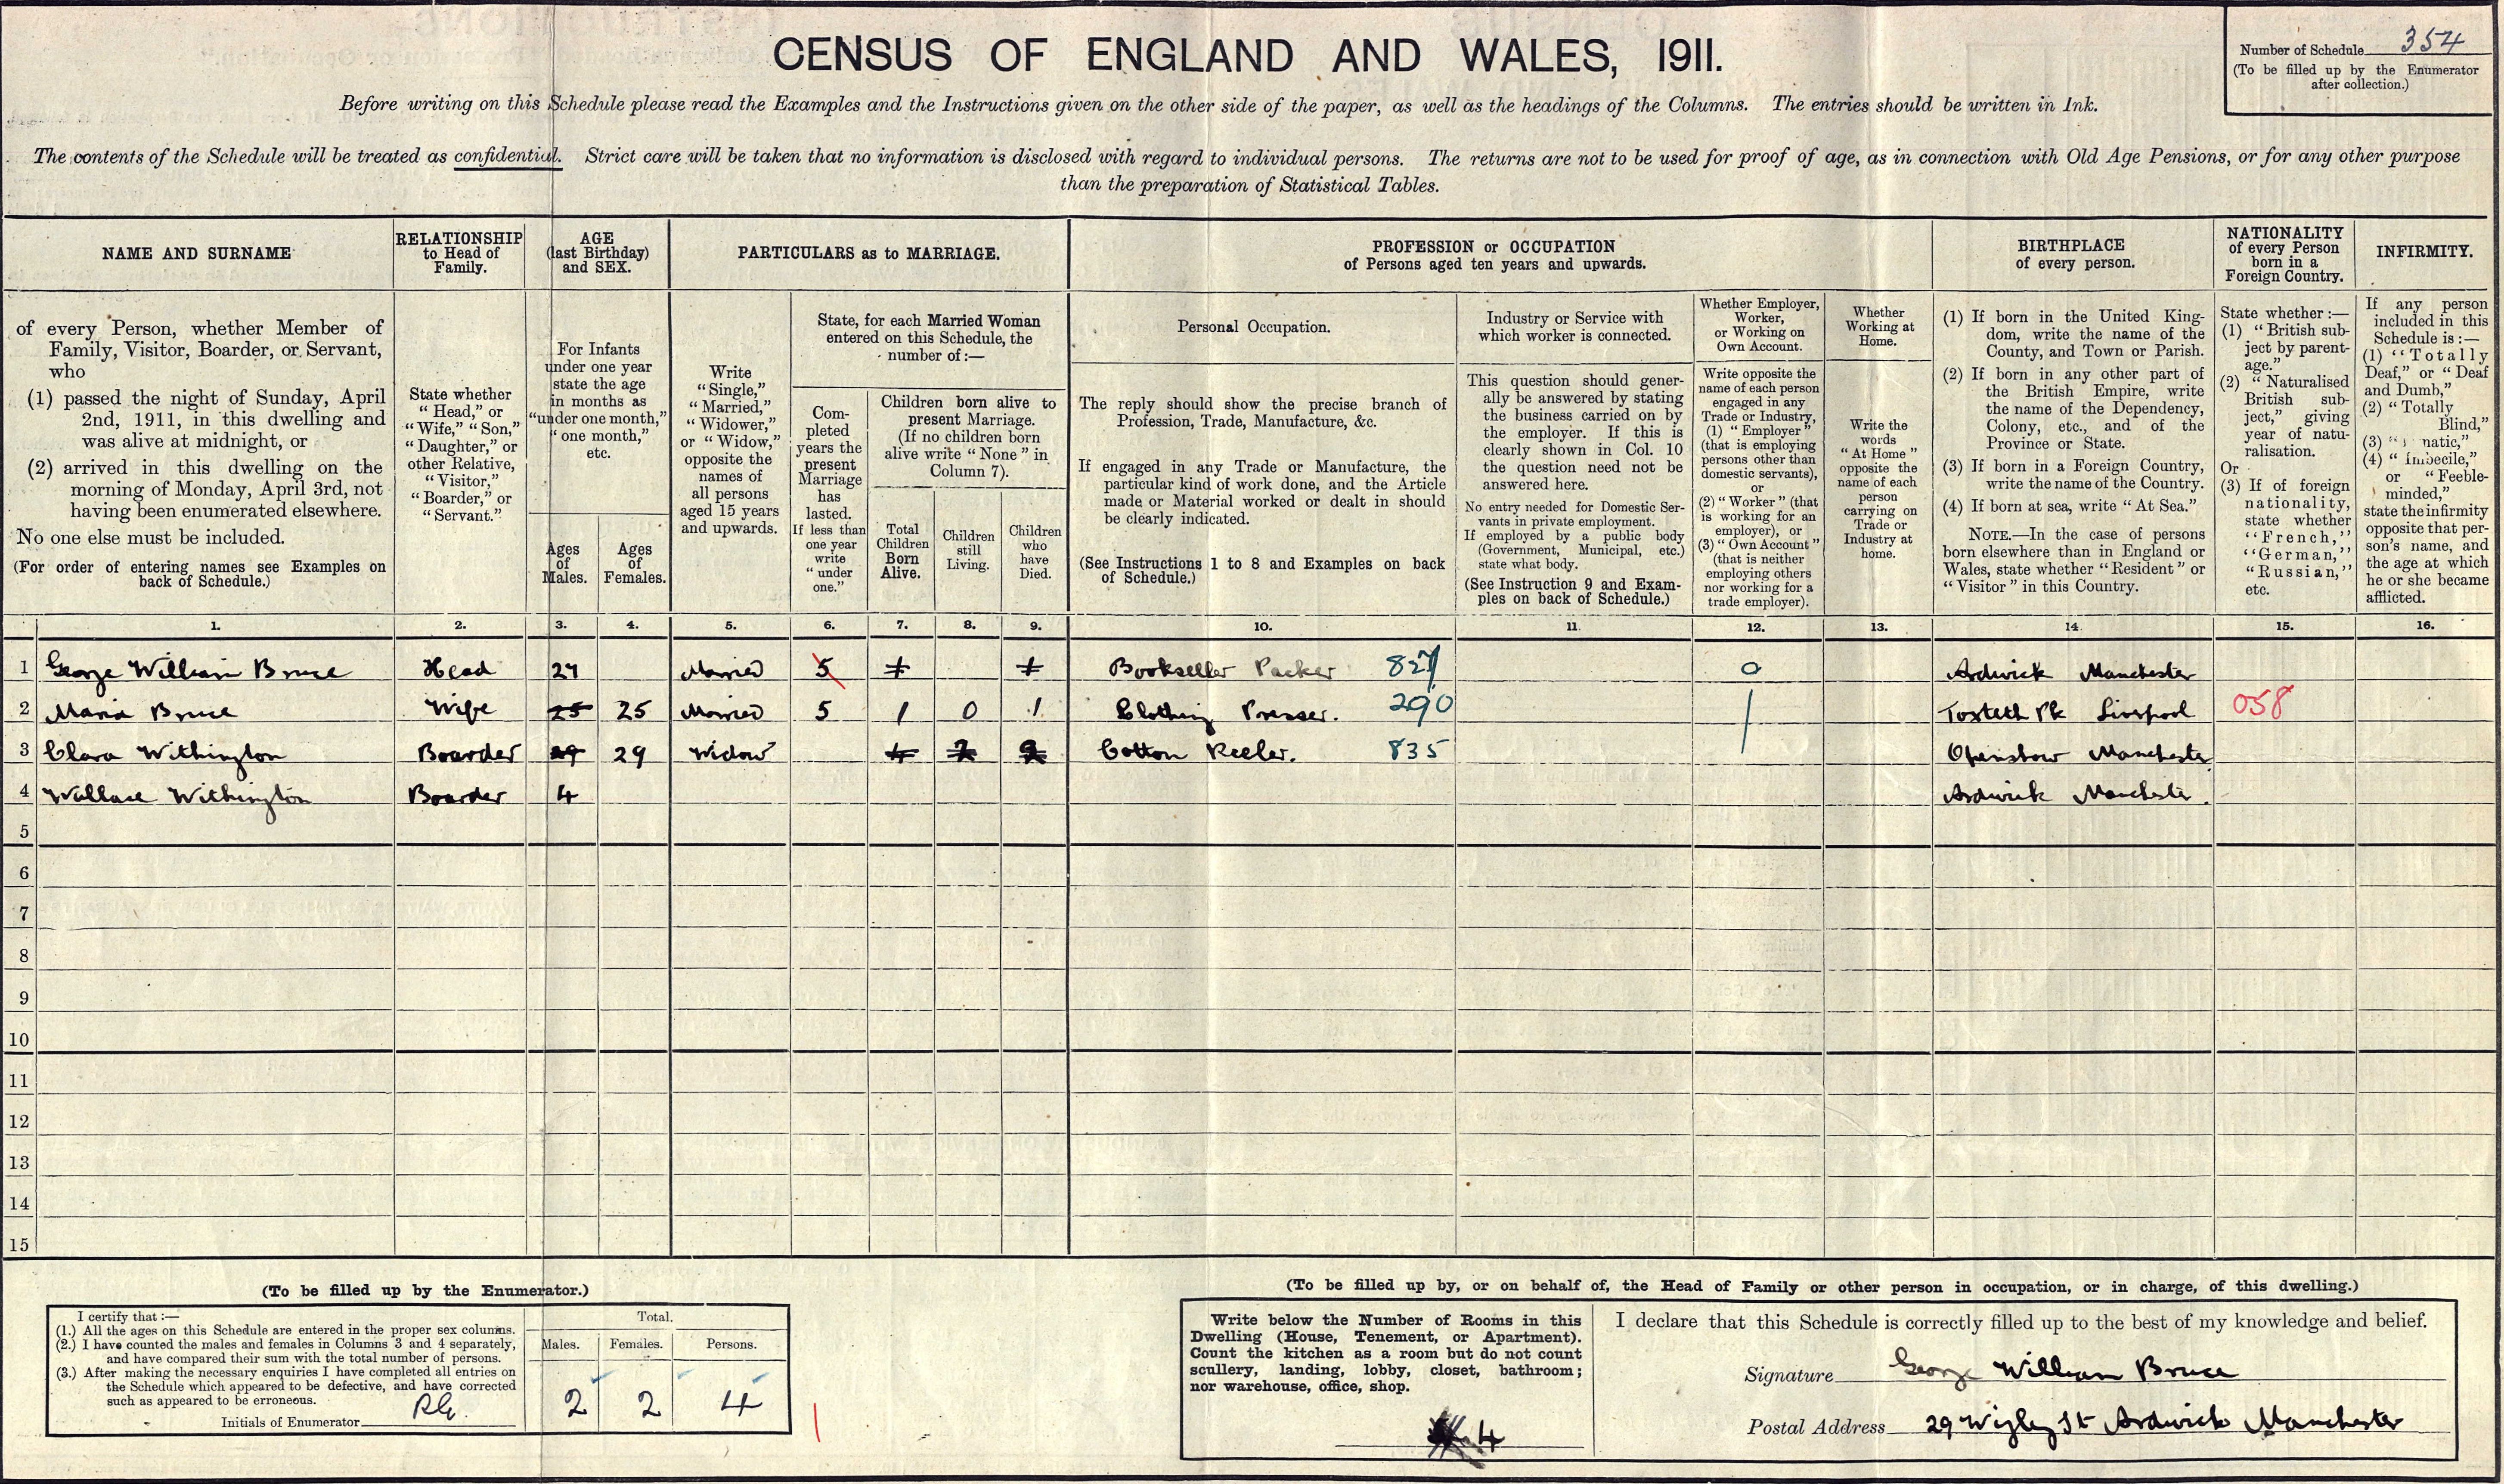 CENSUS OF ENGLAND AND WALES, 1911.
Number of Schedule 354
(To be filled up by the Enumerator after collection.)
Before writing on this Schedule please read the Examples and the Instructions given on the other side of the paper, as well as the headings of the Columns. The entries should be written in Ink.
The contents of the Schedule will be treated as confidential. Strict care will be taken that no information is disclosed with regard to individual persons. The returns are not to be used for proof of age, as in connection with Old Age Pensions, or for any other purpose
than the preparation of Statistical Tables.
NAME AND SURNAME
of every Person, whether Member of
Family, Visitor, Boarder, or Servant,
who
(1) passed the night of Sunday, April
2nd, 1911, in this dwelling and
was alive at midnight, or
(2) arrived in this dwelling on the
morning of Monday, April 3rd, not
having been enumerated elsewhere.
No one else must be included.
(For order of entering names see Examples on
back of Schedule.)
RELATIONSHIP
to Head of
Family.
State whether
"Head," or
"Wife," "Son,"
"Daughter," or
other Relative,
"Visitor,"
"Boarder," or
"Servant."
AGE
(last Birthday)
and SEX.
For Infants
under one year
state the age
in months as
"under one month,"
"one month,"
etc.
Ages
of
Males.
Ages
of
Females.
PARTICULARS as to MARRIAGE.
Write
"Single,"
"Married,"
"Widower,"
or "Widow,"
opposite the
names of
all persons
aged 15 years
and upwards.
State, for each Married Woman
entered on this Schedule, the
number of:—
Com-
pleted
years the
present
Marriage
has
lasted.
If less than
one year
write
"under
one."
Children born alive to
present Marriage.
(If no children born
alive write "None" in
Column 7).
Total
Children
Born
Alive.
Children
still
Living.
Children
who
have
Died.
PROFESSION or OCCUPATION
of Persons aged ten years and upwards.
Personal Occupation.
The reply should show the precise branch of
Profession, Trade, Manufacture, &c.
If engaged in any Trade or Manufacture, the
particular kind of work done, and the Article
made or Material worked or dealt in should
be clearly indicated.
(See Instructions 1 to 8 and Examples on back
of Schedule.)
Industry or Service with
which worker is connected.
This question should gener-
ally be answered by stating
the business carried on by
the employer. If this is
clearly shown in Col. 10
the question need not be
answered here.
No entry needed for Domestic Ser-
vants in private employment.
If employed by a public body
(Government, Municipal, etc.)
state what body.
(See Instruction 9 and Exam-
ples on back of Schedule.)
Whether Employer,
Worker,
or Working on
Own Account.
Write opposite the
name of each person
engaged in any
Trade or Industry,
(1) "Employer"
(that is employing
persons other than
domestic servants),
or
(2) "Worker" (that
is working for an
employer), or
(3) "Own Account"
(that is neither
employing others
nor working for a
trade employer).
Whether
Working at
Home.
Write the
words
"At Home"
opposite the
name of each
person
carrying on
Trade or
Industry at
home.
BIRTHPLACE
of every person.
(1) If born in the United King-
dom, write the name of the
County, and Town or Parish.
(2) If born in any other part of
the British Empire, write
the name of the Dependency,
Colony, etc., and of the
Province or State.
(3) If born in a Foreign Country,
write the name of the Country.
(4) If born at sea, write "At Sea."
NOTE.—In the case of persons
born elsewhere than in England or
Wales, state whether "Resident" or
"Visitor" in this Country.
NATIONALITY
of every Person
born in a
Foreign Country.
State whether:—
(1) "British sub-
ject by parent-
age."
(2) "Naturalised
British sub-
ject," giving
year of natu-
ralisation.
Or
(3) If of foreign
nationality,
state whether
"French,"
"German,"
"Russian,"
etc.
INFIRMITY.
If any person
included in this
Schedule is:—
(1) "Totally
Deaf," or "Deaf
and Dumb,"
(2) "Totally
Blind,"
(3) natic,"
(4) "Imbecile,"
or "Feeble-
minded,"
state the infirmity
opposite that per-
son's name, and
the age at which
he or she became
afflicted.
1. 2. 3. 4. 5. 6. 7. 8. 9. 10. 11. 12. 13. 14. 15. 16.
1 George William Bruce Head 27 Married 5 1 1 Bookseller Packer 827 0 Ardwick Manchester
2 Maria Bruce Wife 25 25 Married 5 1 0 1 Clothing Presser. 290 Toxteth Pk Liverpool 058
3 Clara Withington Boarder 29 29 Widow Cotton Reeler. 835 Openshaw Manchester
4 Wallace Withington Boarder 4 Ardwick Manchester.
5
6
7
8
9
10
11
12
13
14
15
(To be filled up by the Enumerator.)
I certify that:—
(1.) All the ages on this Schedule are entered in the proper sex columns.
(2.) I have counted the males and females in Columns 3 and 4 separately,
and have compared their sum with the total number of persons.
(3.) After making the necessary enquiries I have completed all entries on
the Schedule which appeared to be defective, and have corrected
such as appeared to be erroneous.
Initials of Enumerator RG.
Total.
Males. Females. Persons.
2 2 4
(To be filled up by, or on behalf of, the Head of Family or other person in occupation, or in charge, of this dwelling.)
Write below the Number of Rooms in this
Dwelling (House, Tenement, or Apartment).
Count the kitchen as a room but do not count
scullery, landing, lobby, closet, bathroom;
nor warehouse, office, shop.
4
I declare that this Schedule is correctly filled up to the best of my knowledge and belief.
Signature George William Bruce
Postal Address 29 Wigley St Ardwick Manchester